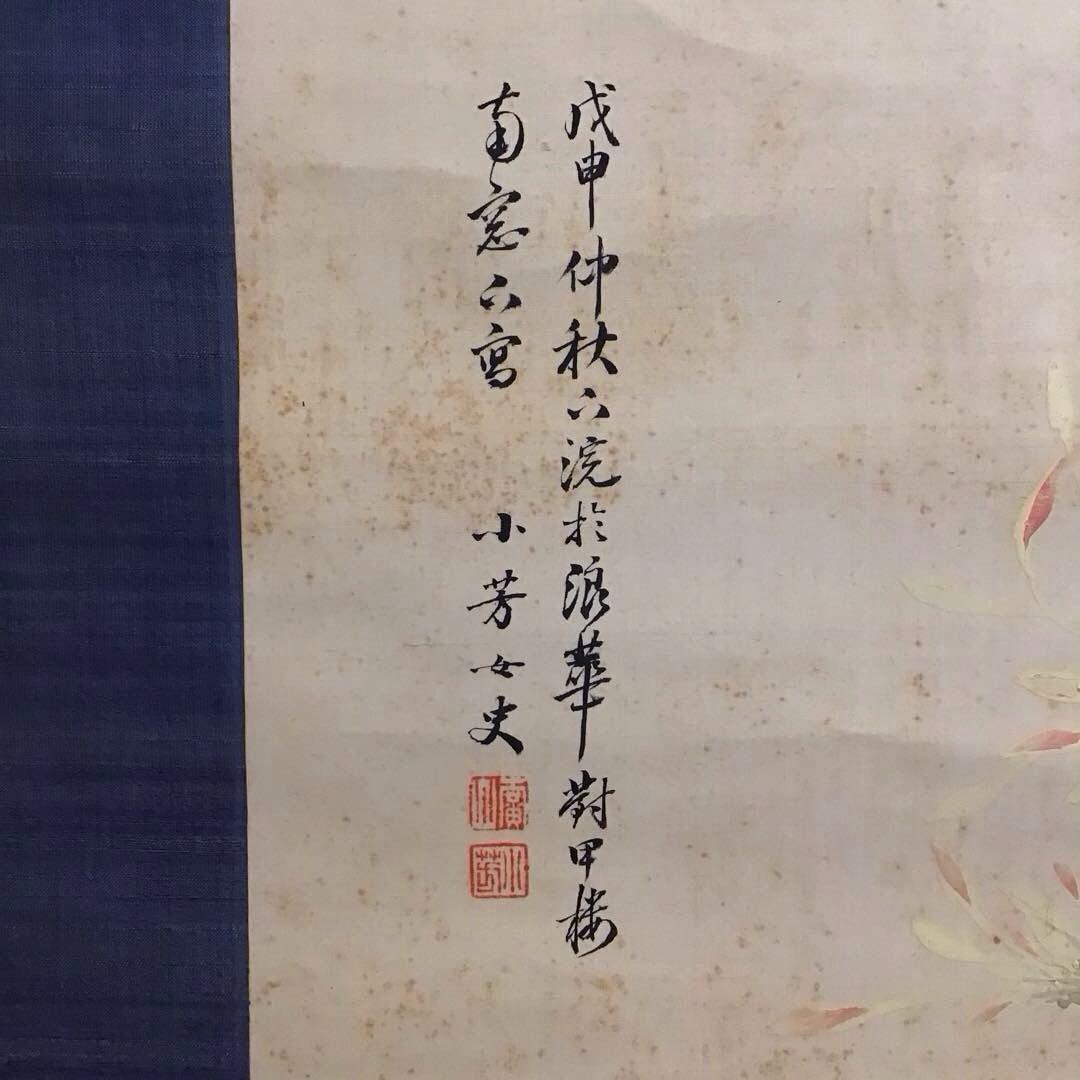 戊申仲秋下浣於浪華對甲楼
南窓下寫
小芳女史
小芳